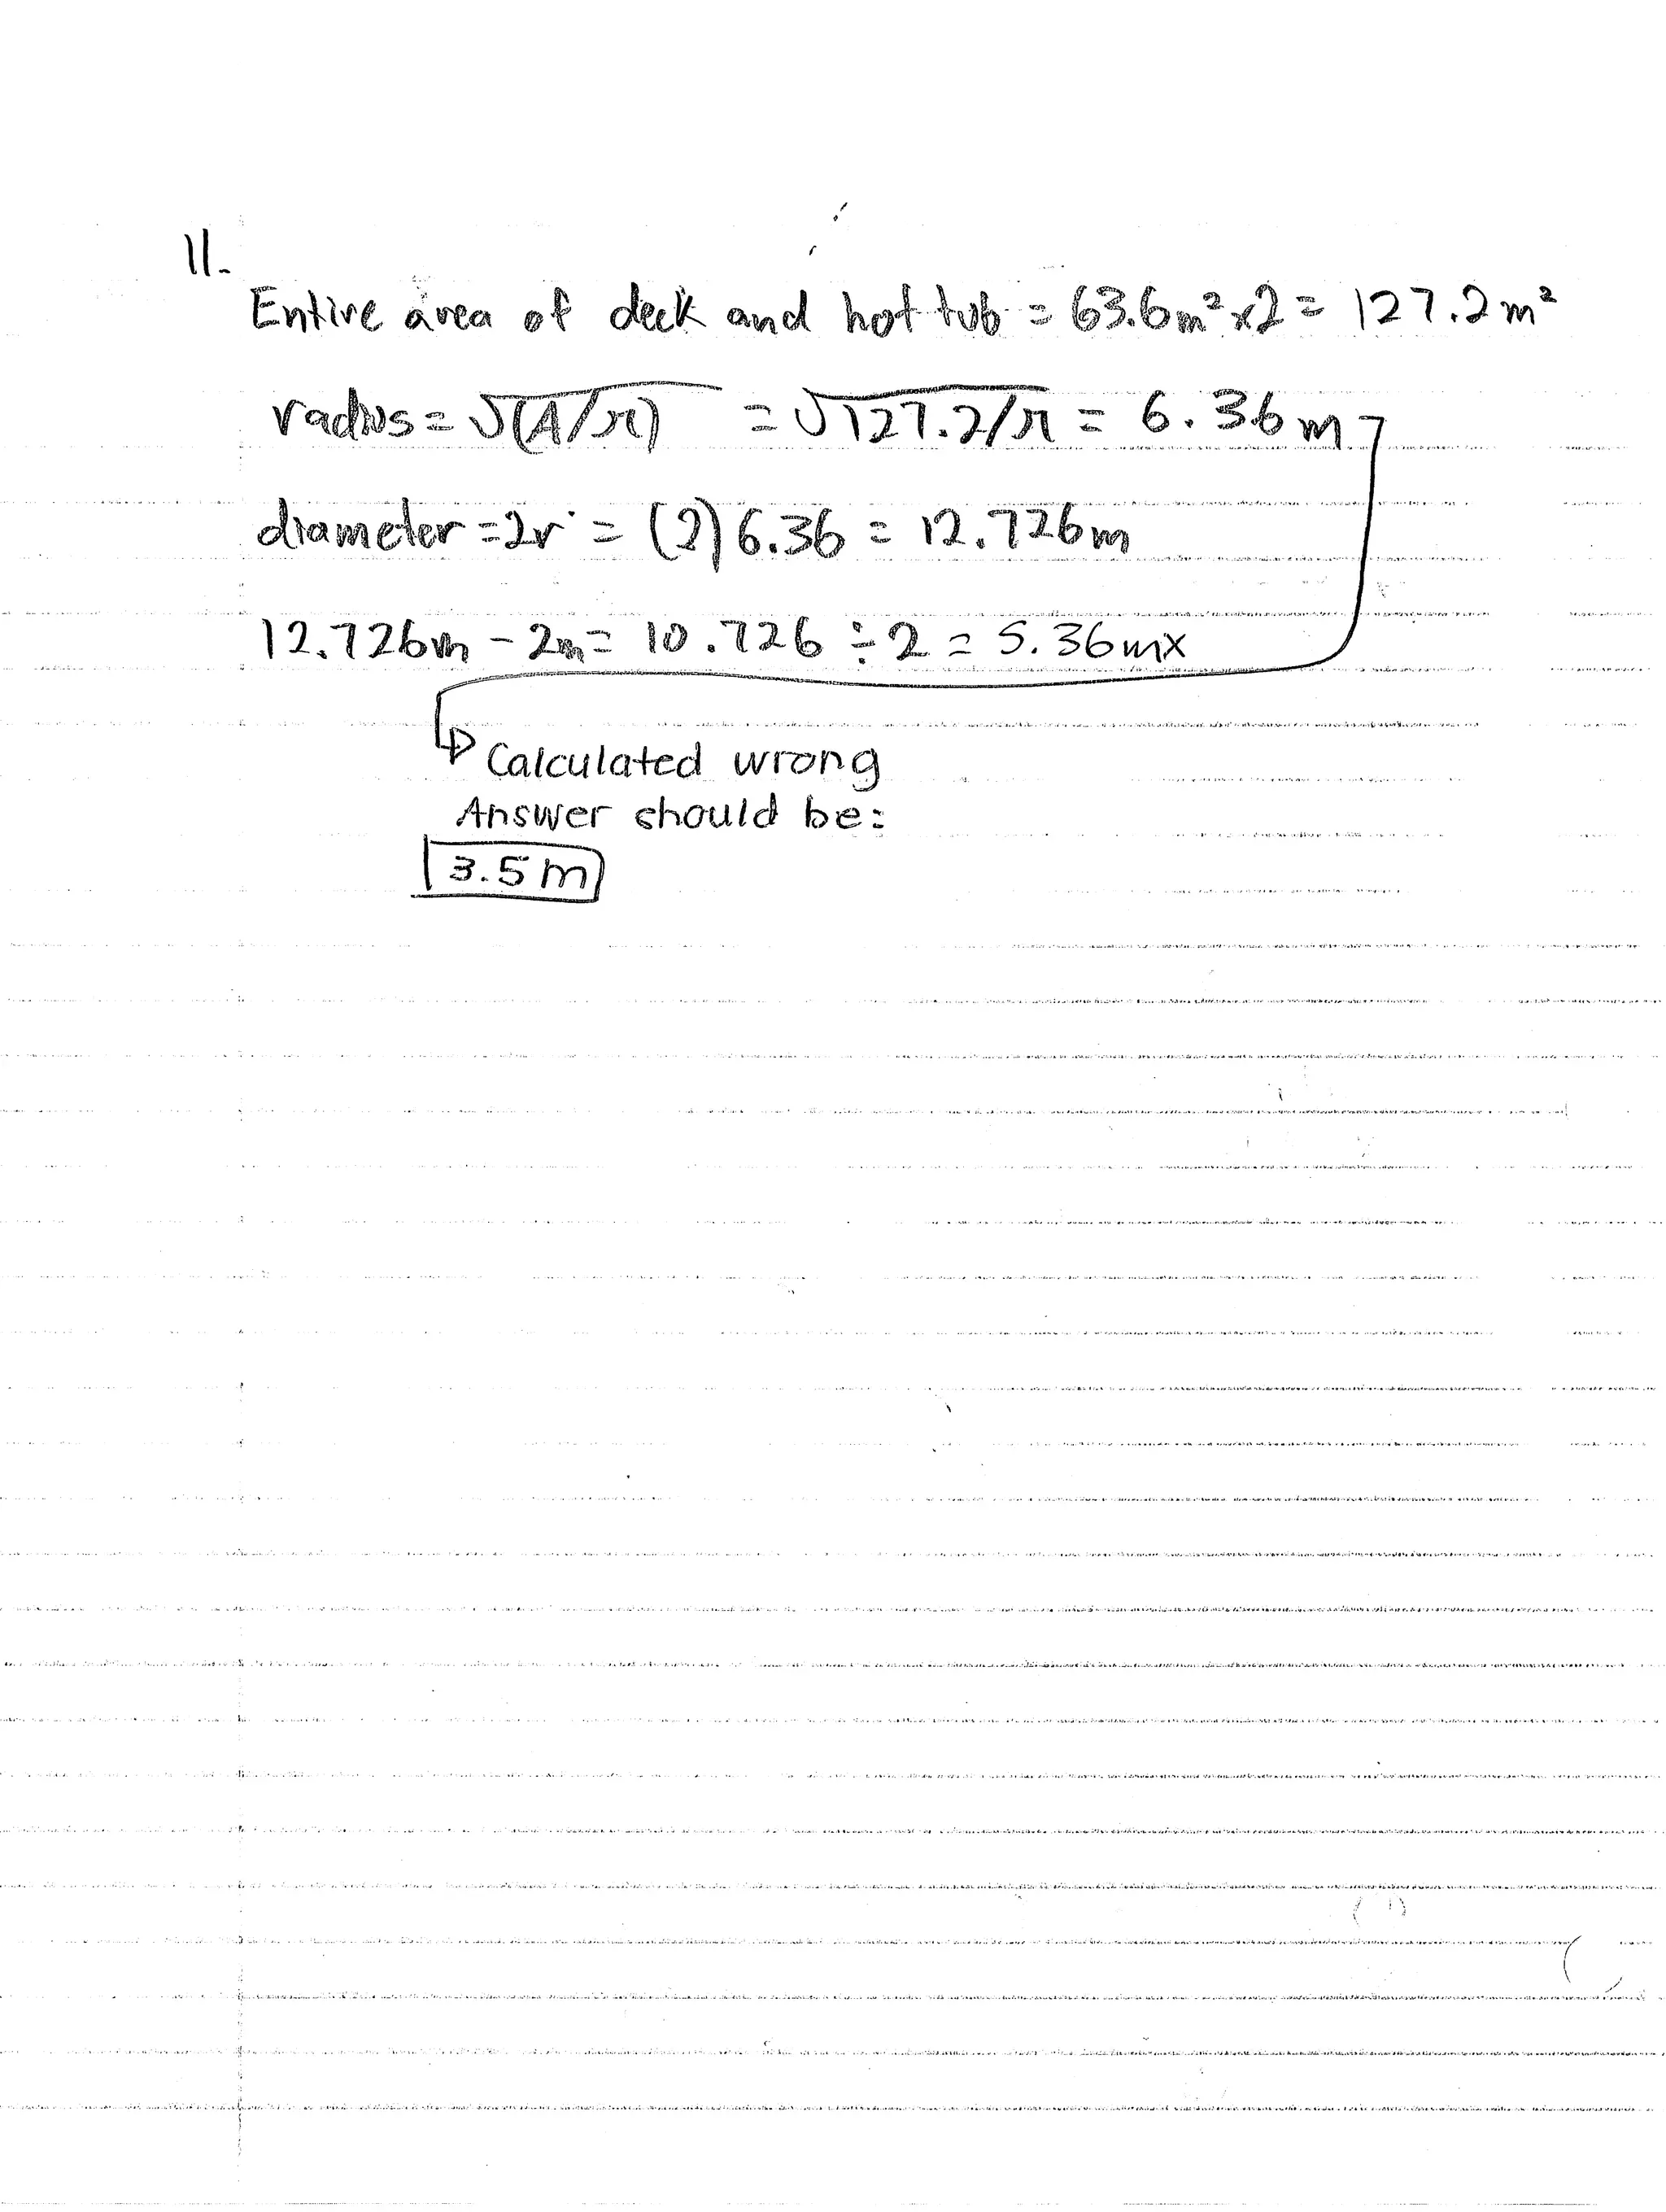 11.
Entire area of deck and hot tub = 63.6m² x2 = 127.2 m²
radius = √(A/π) = √127.2/π = 6.36m
diameter = 2r = (2) 6.36 = 12.726m
12.726m - 2m = 10.726 ÷ 2 = 5.36m x
↳ Calculated wrong
Answer should be:
3.5m